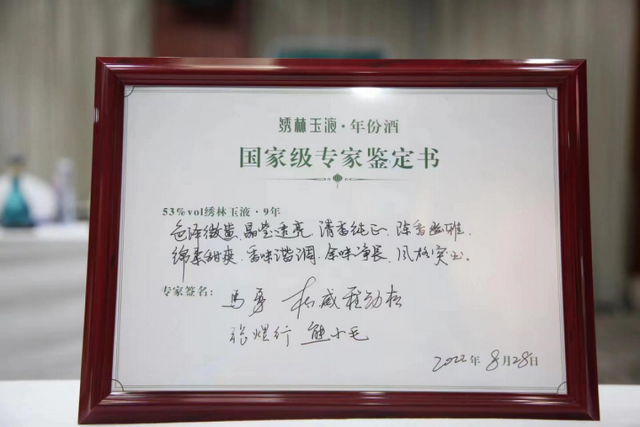 绣林玉液·年份酒
国家级专家鉴定书
53%vol绣林玉液·9年
色泽微黄、晶莹透亮、清香纯正、陈香幽雅、
绵柔甜爽、香味谐调、余味净长、风格突出。
专家签名：马勇 杨威 程劲松
张煜行 熊小毛
2022年8月28日